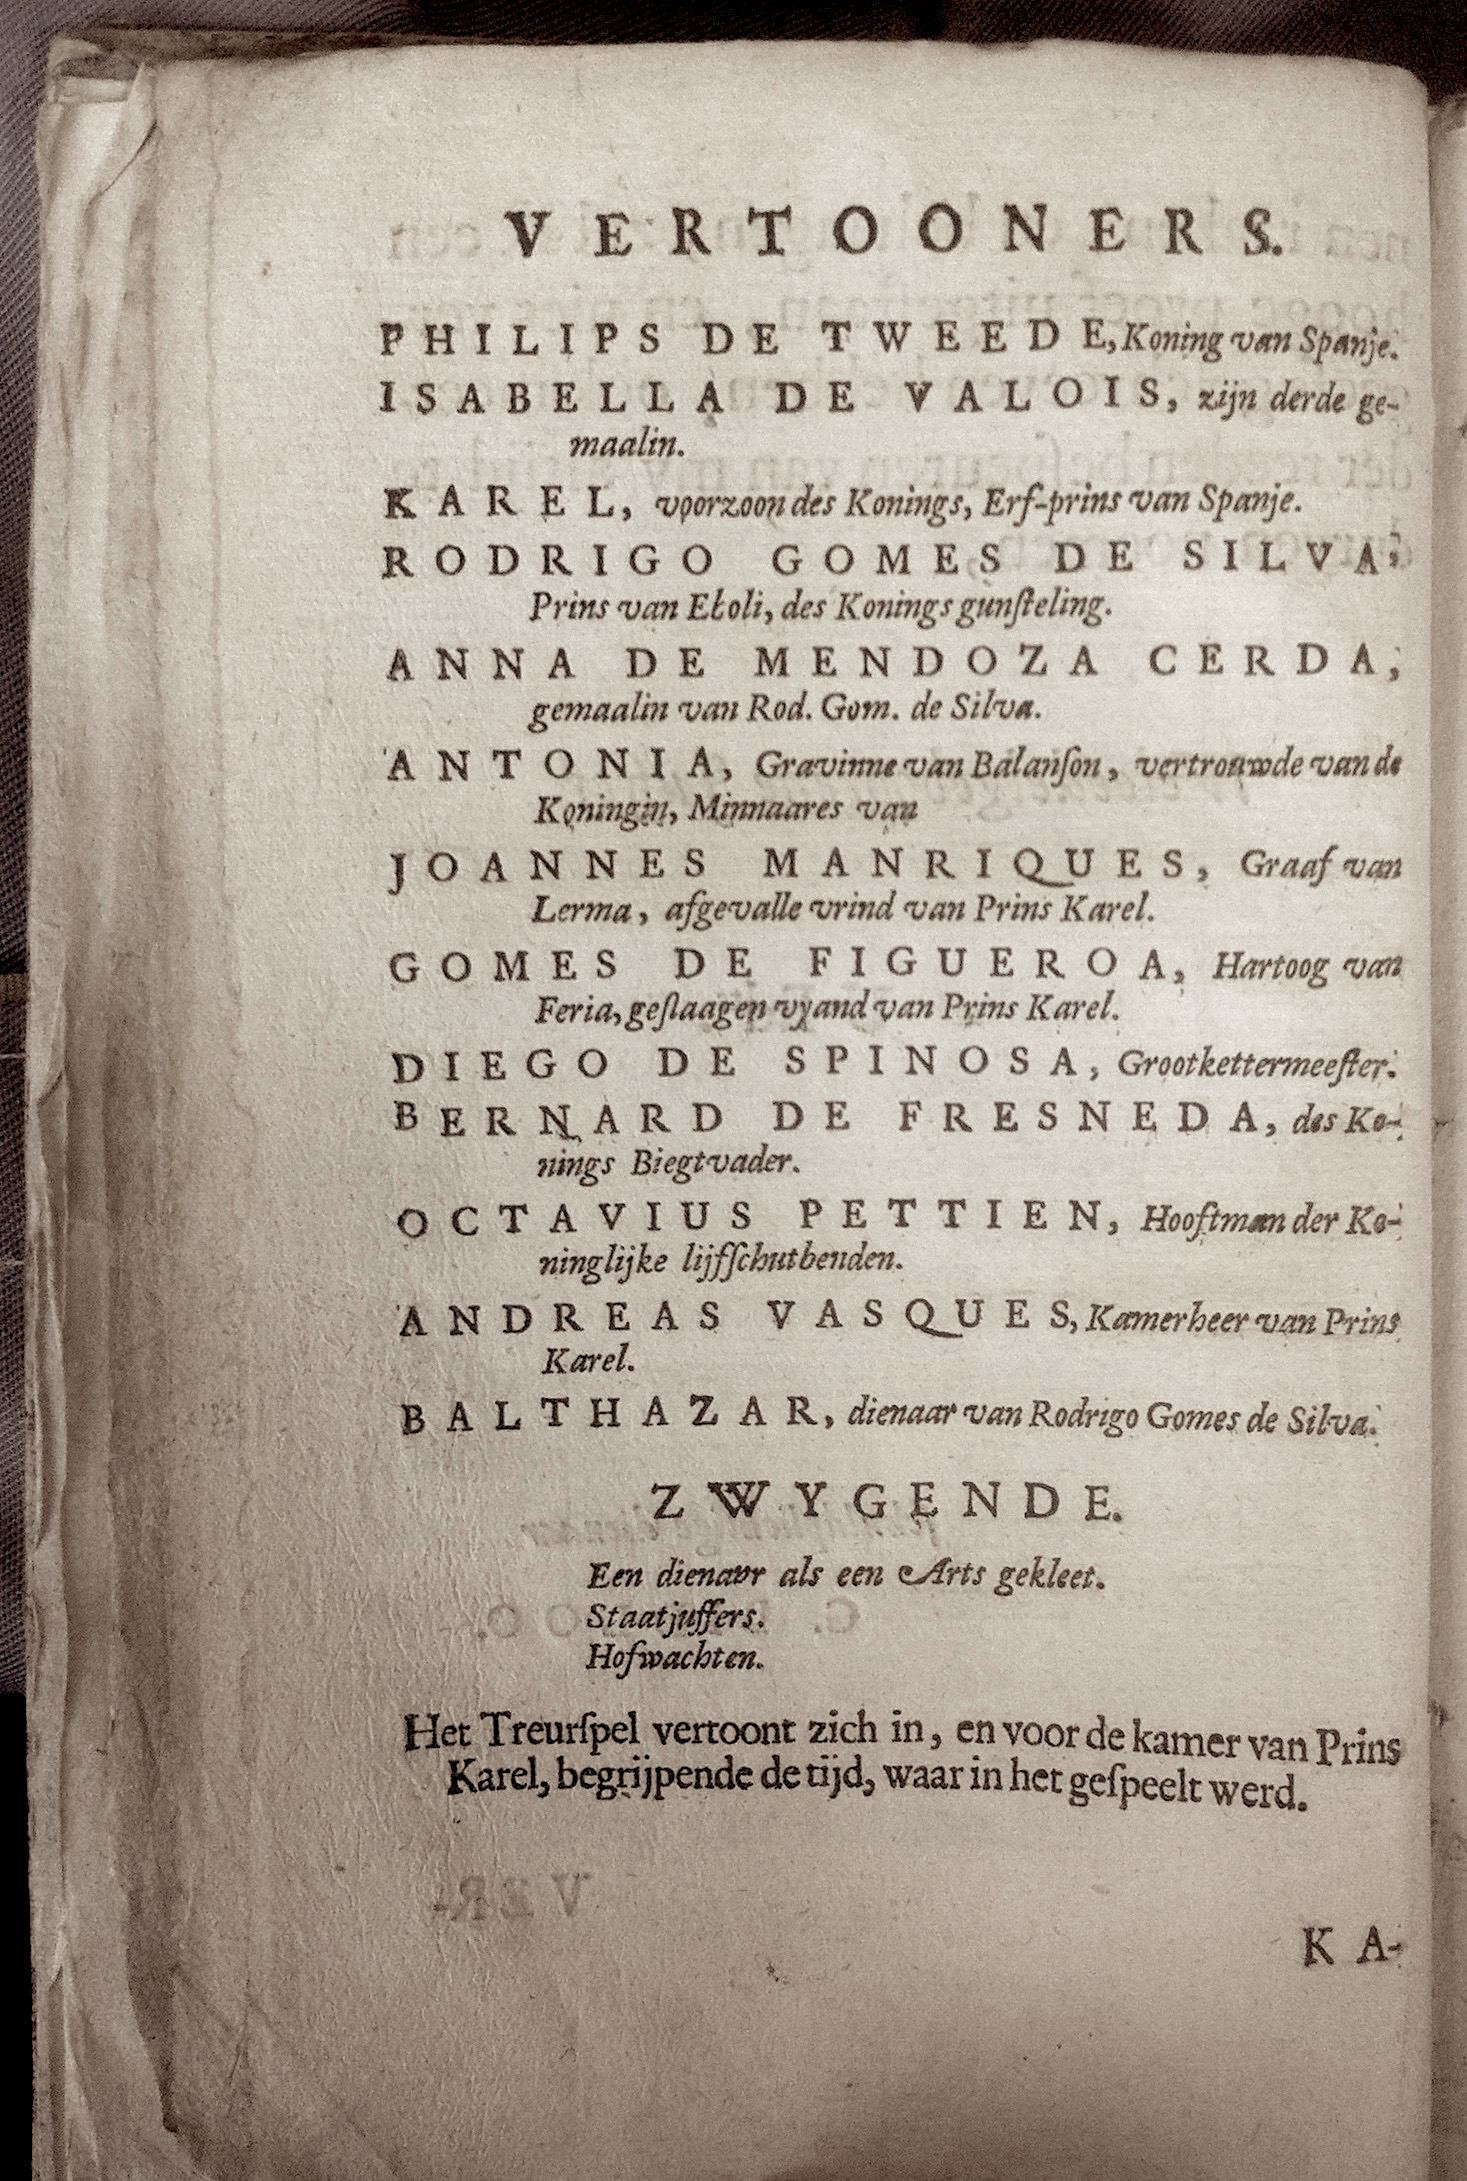 VERTOONERS.
PHILIPS DE TWEEDE, Koning van Spanje.
ISABELLA DE VALOIS, zijn derde ge-
maalin.
KAREL, voorzoon des Konings, Erf-prins van Spanje.
RODRIGO GOMES DE SILVA,
Prins van Eboli, des Konings gunſteling.
ANNA DE MENDOZA CERDA,
gemaalin van Rod. Gom. de Silva.
ANTONIA, Gravinne van Balanſon, vertrouwde van de
Koningin, Minnaares van
JOANNES MANRIQUES, Graaf van
Lerma, afgevalle vrind van Prins Karel.
GOMES DE FIGUEROA, Hartoog van
Feria, geſlaagen vyand van Prins Karel.
DIEGO DE SPINOSA, Grootkettermeeſter.
BERNARD DE FRESNEDA, des Ko-
nings Biegtvader.
OCTAVIUS PETTIEN, Hooftman der Ko-
ninglijke lijfſchutbenden.
ANDREAS VASQUES, Kamerheer van Prins
Karel.
BALTHAZAR, dienaar van Rodrigo Gomes de Silva.
ZWYGENDE.
Een dienaar als een Arts gekleet.
Staatjuffers.
Hofwachten.
Het Treurſpel vertoont zich in, en voor de kamer van Prins
Karel, begrijpende de tijd, waar in het geſpeelt werd.
KA-